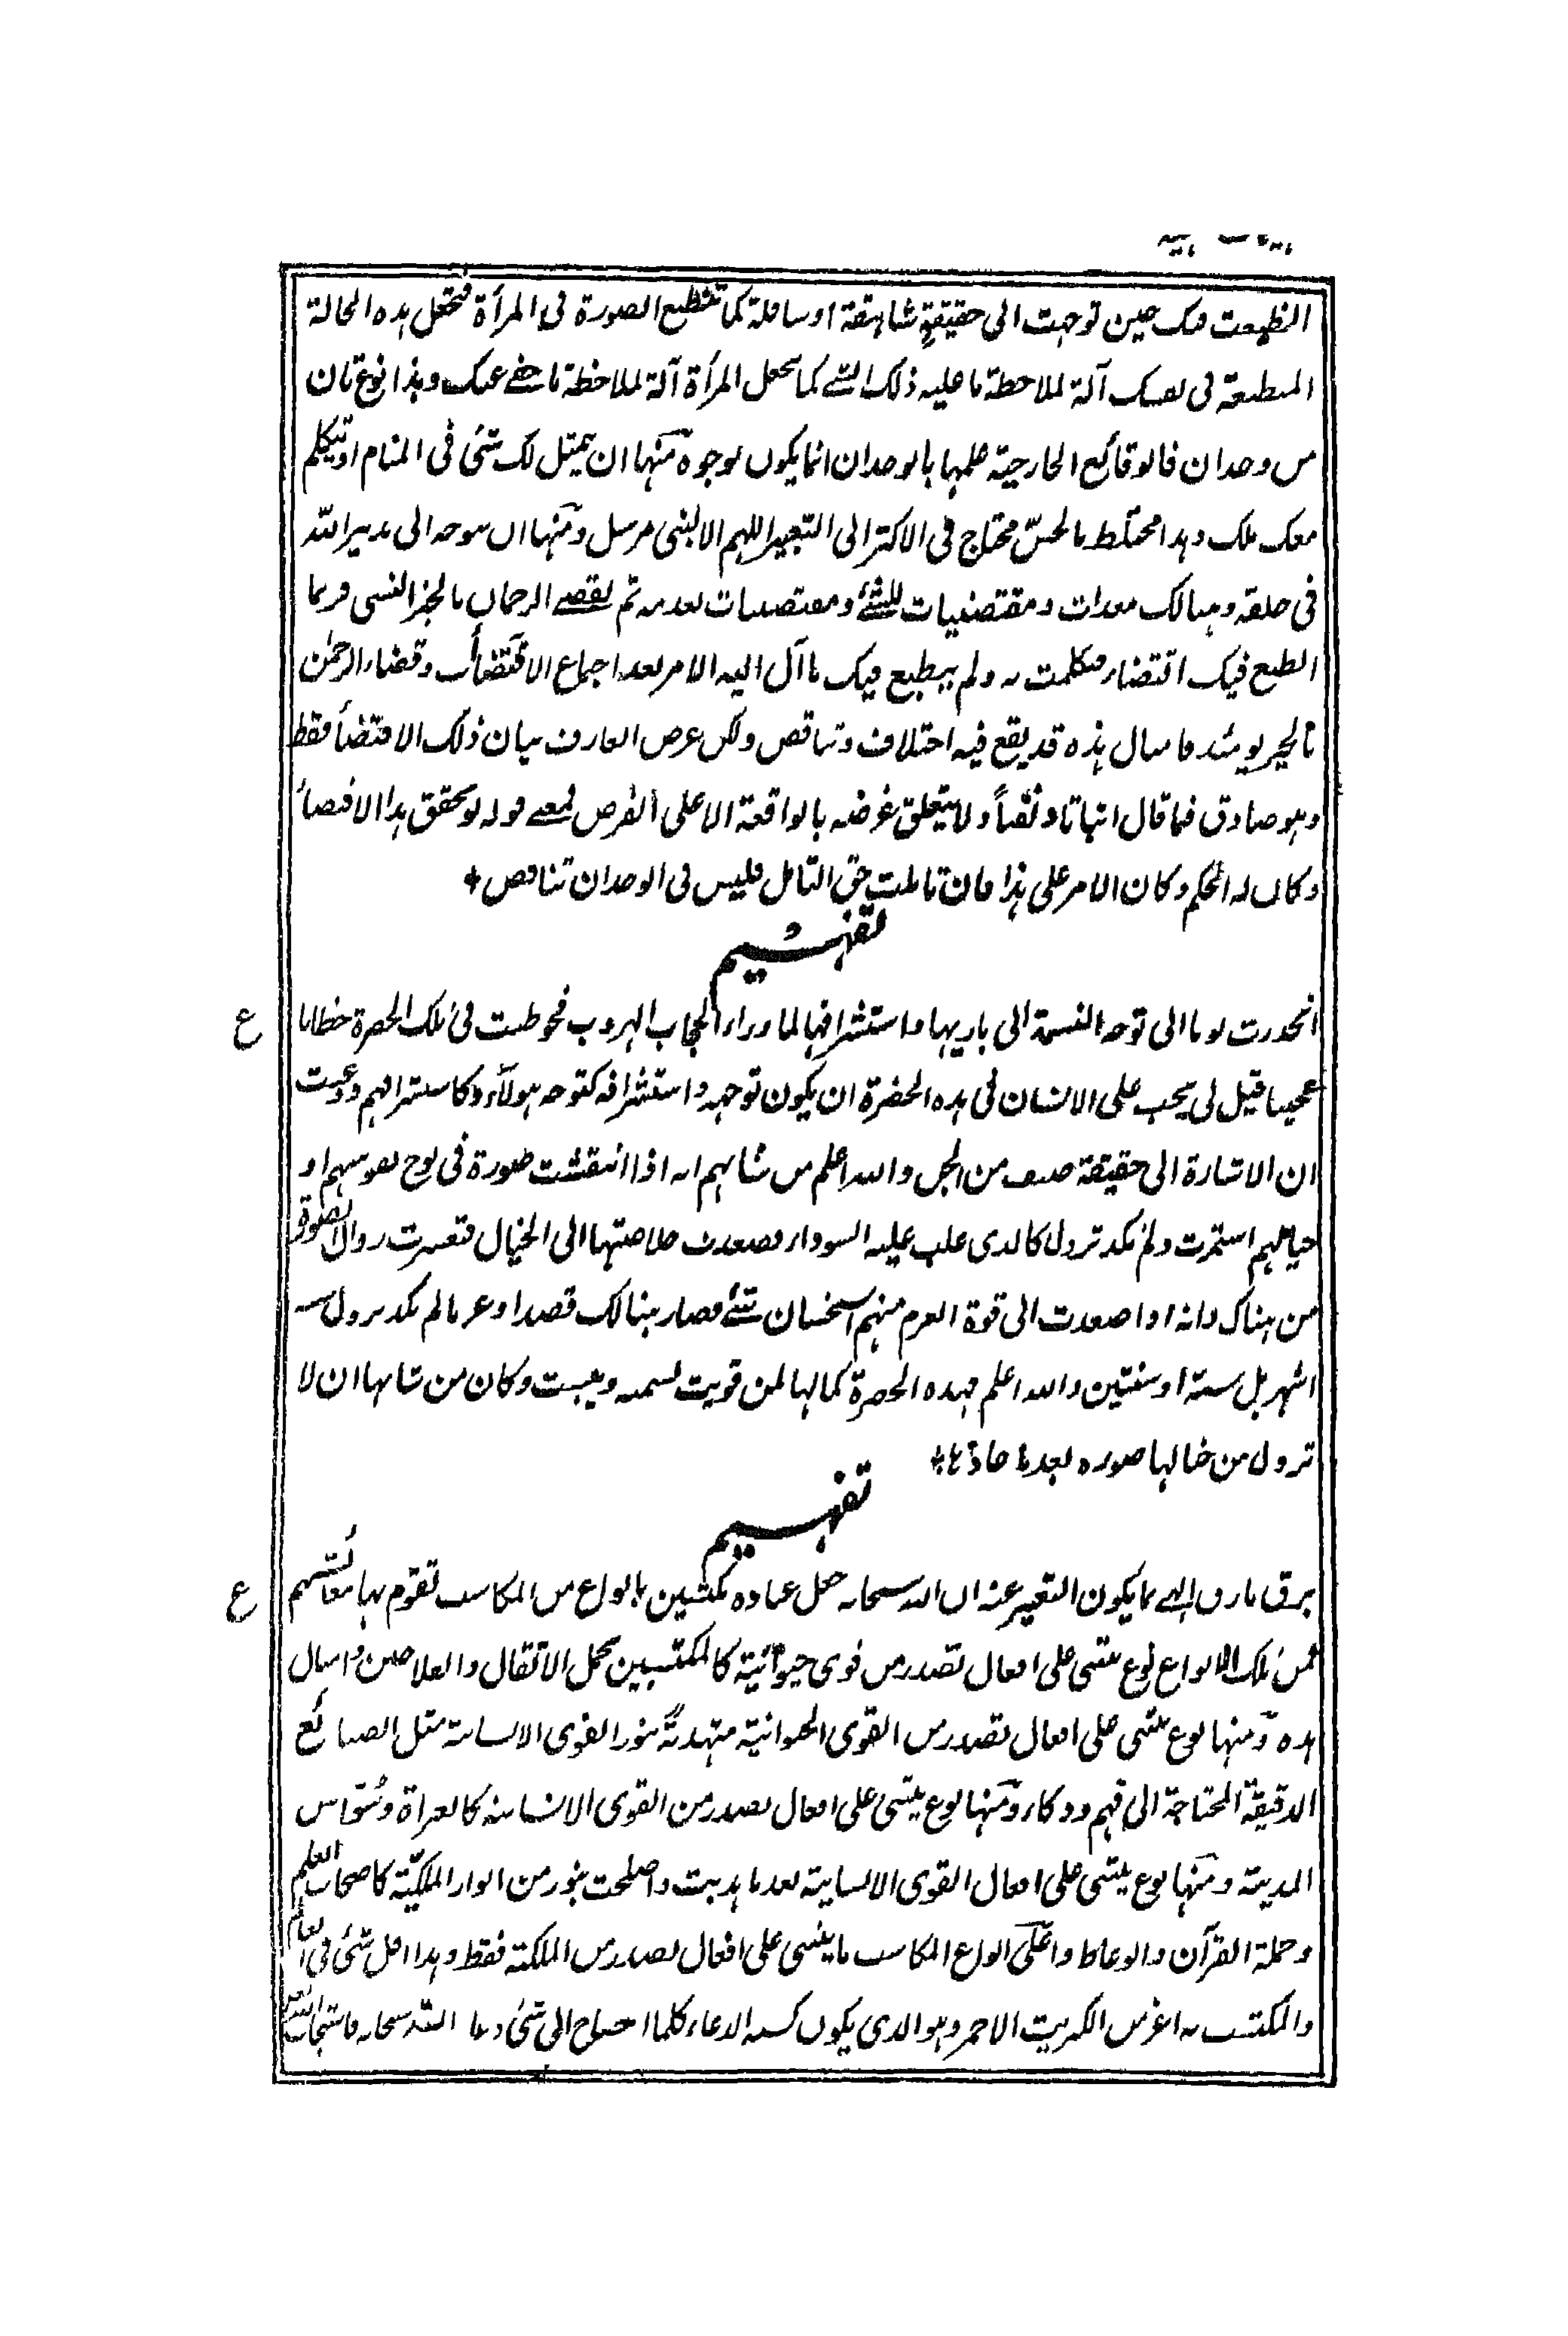 انطبعت فيك حين توجهت الى حقيقةٍ شاهقة او سافلة كما تنطبع الصورة فى المرأة فتجعل هذه الحالة
المنطبعة فى نفسك آلة لملاحظة ما عليه ذلك الشئ كما تجعل المرأة آلة لملاحظة ما خفى عنك وهذا نوع ثان
من وجدان فالوقائع الخارجية علمها بالوجدان انما يكون بوجوه منها ان يتمثل لك شئ فى المنام او يتكلم
معك ملك وهذا مختلط بالحسّ محتاج فى الاكثر الى التعبير اللهم الا لنبى مرسل ومنها ان يتوجه الى تدبير الله
فى خلقه وهنالك معدات ومقتضيات للشئ ومقتضيات لعدمه ثم يقضى الرحمان بالجزء النسى فربما
انطبع فيك اقتضاء فتكلمت به ولم ينطبع فيك ما آل اليه الامر بعد اجماع الاقتضاآت وقضاء الرحمٰن
فامثال هذه قد يقع فيه اختلاف وتناقض ولكن غرض العارف بيان ذلك الاقتضاء فقط
وهو صادق فيما قال اثباتا ونفياً ولا يتعلق غرضه بالواقعة الا على الفرض فمعنى قوله لو تحقق هذا الاقتضاء
وكان له الحكم وكان الامر على هذا فان تاملت حق التامل فليس فى الوجدان تناقض
تفهــيم
انحدرت يوما الى توجه النسمة الى باريها واستشرافها لما وراء الحجاب الهروب فخوطبت فى تلك الحضرة خطابا
عجيبا قيل لى يجب على الانسان فى هذه الحضرة ان يكون توجهه واستشرافه كتوجه هولآء وكاستشرافهم ودعيت
ان الاشارة الى حقيقة صنف من الجن والله اعلم من شانهم انه اذا انتقشت صورة فى لوح نفوسهم او
خيالهم استمرت ولم تكد تزول كالذى غلب عليه السوداء فصعدت خلاصتها الى الخيال فتعسرت زوال الصورة
من هناك وانه اذا صعدت الى قوة العزم منهم استحسان شئ فصار هنالك قصدا وعزما لم يكد يزول ستة
اشهر بل سنة او سنتين والله اعلم فهذه الحضرة كمالها لمن قويت نسمته ويبست وكان من شانها ان لا
تزول من خيالها صورة بعد ما حاذته
تفهــيم
برق بارق الهى مما يكون التعبير عنه ان الله سبحانه جعل عباده مكتسبين بانواع من المكاسب تقوم بها معاشهم
فمن تلك الانواع نوع يبتنى على افعال تصدر من قوى حيوانية كالمكتسبين بحمل الاثقال والفلاحين وامثال
هذه ومنها نوع يبتنى على افعال تصدر من القوى الحيوانية متهذبة بنور القوى الانسانية مثل الصنائع
الدقيقة المحتاجة الى فهم وذكاء ومنها نوع يبتنى على افعال تصدر من القوى الانسانية كالغزاة وسُوّاس
المدينة ومنها نوع يبتنى على افعال القوى الانسانية بعد ما هذبت واصلحت بنور من انوار الملكيّة كاصحاب العلم
وحملة القرآن والوعاظ واعلى انواع المكاسب ما يبتنى على افعال تصدر من الملكية فقط وهذا اقل شئ فى العالم
والمكتسب به اعز من الكبريت الاحمر وهو الذى يكون كسبه الدعاء كلما احتاج الى شئ دعا الله سبحانه فاستجاب
ع
ع